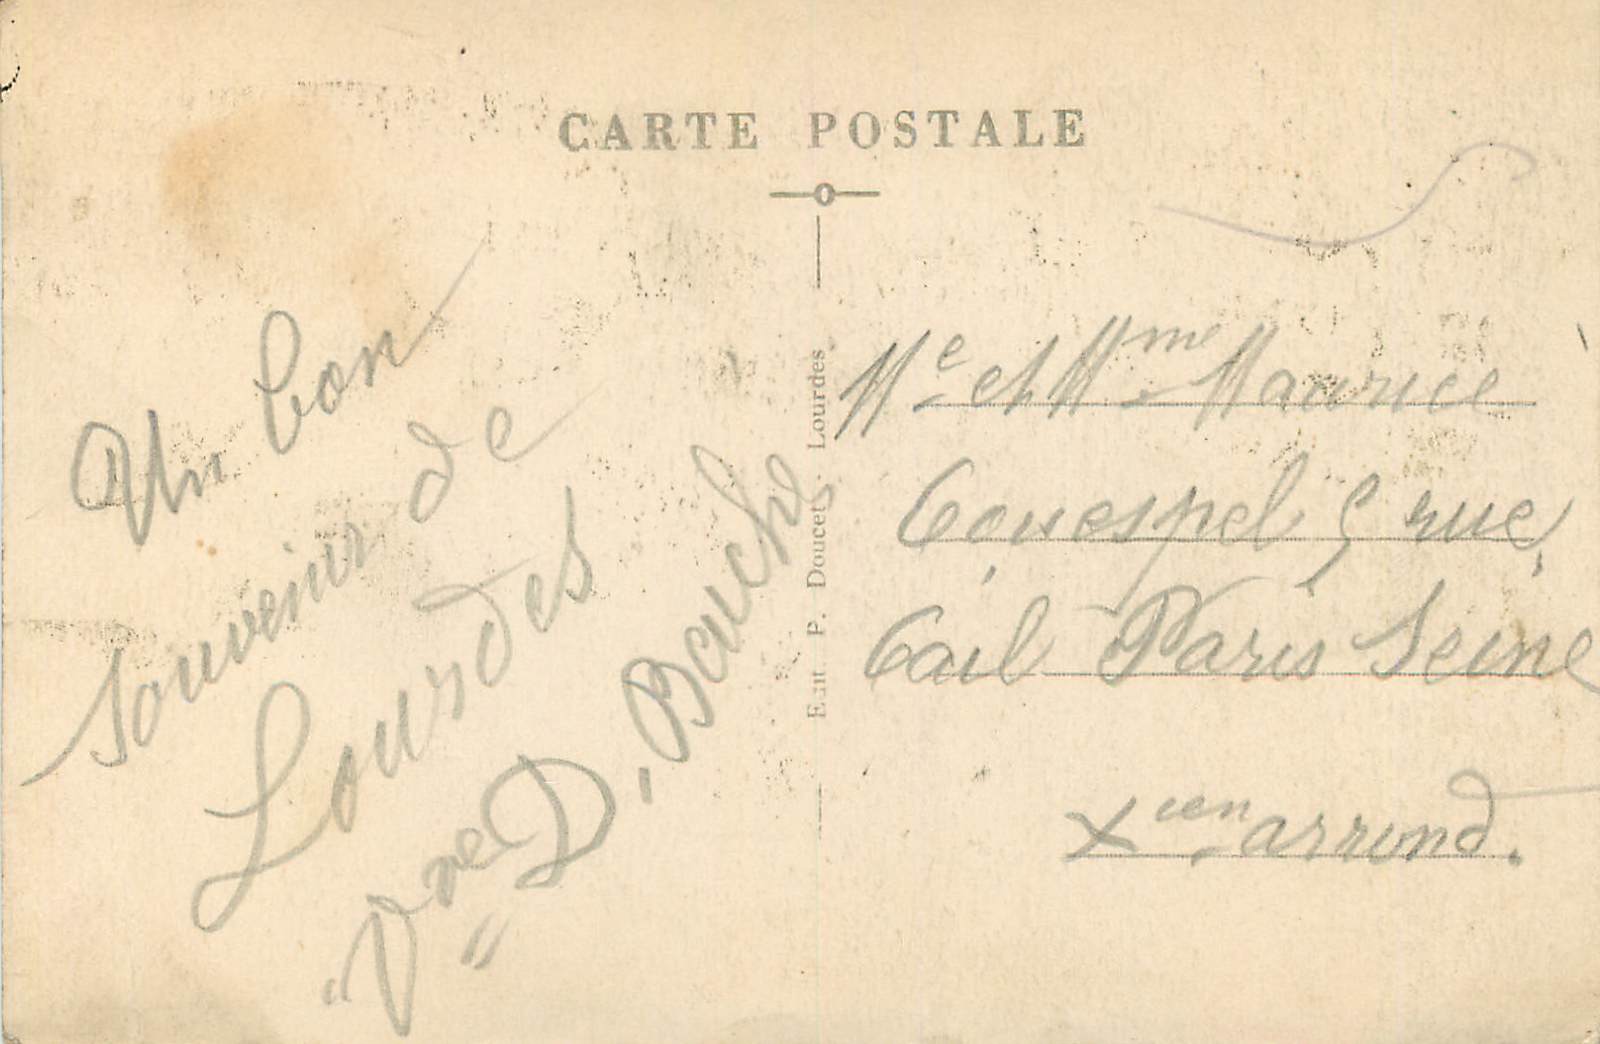 CARTE POSTALE
Un bon
souvenir de
Lourdes
Vve D. Bauche
Edit P. Doucet, Lourdes
Me et Mme Maurice
Couespel 5 rue
Cail Paris Seine
Xien arrond.